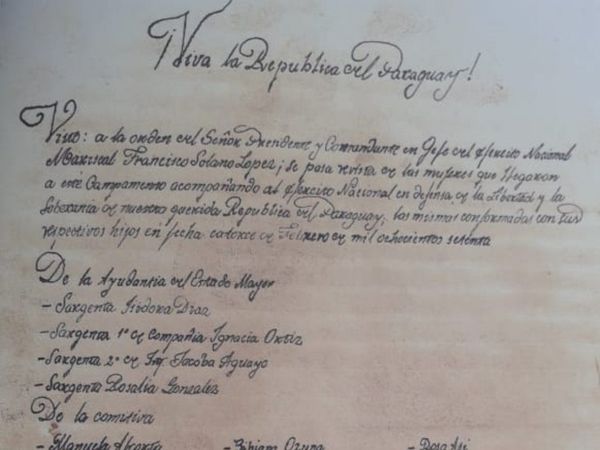 ¡Viva la Republica del Paraguay!
Visto: a la orden del Señor Presidente y Comandante en Gefe del Ejercito Nacional
Mariscal Francisco Solano Lopez; se pasa revista de las mujeres que llegaron
a este Campamento acompañando al Ejercito Nacional en defensa de la Libertad y la
Soberania de nuestro querida Republica del Paraguay, las mismas conformadas con sus
respectivos hijos en fecha catorce de Febrero de mil ochocientos setenta
De la Ayudantia del Estado Mayor
- Sargenta Isidora Diaz
- Sargenta 1° de Compañia Ignacia Ortiz
- Sargenta 2° de Inf. Jacoba Aguayo
- Sargenta Rosalia Gonzalez
De la comitiva
- Manuela - Bibiana - Rosa